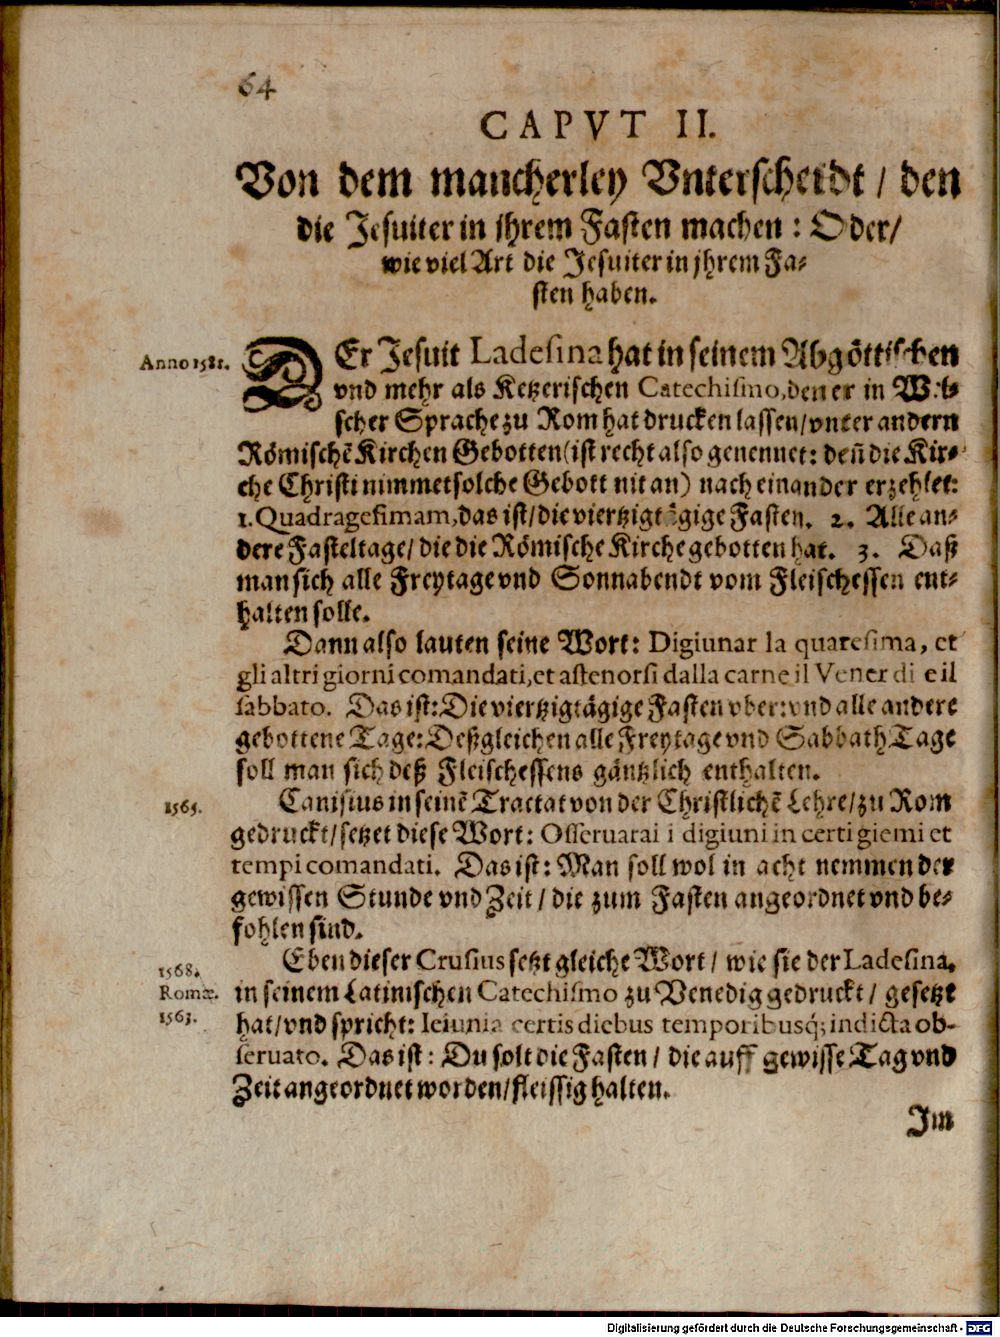 64
CAPVT II.
Von dem mancherley Vnterscheidt / den
die Jesuiter in jhrem Fasten machen : Oder /
wie viel Art die Jesuiter in jhrem Fa-
sten haben.
Anno 1581.
DEr Jesuit Ladesina hat in seinem Abgöttischen
vnd mehr als Ketzerischen Catechismo, den er in Wel-
scher Sprache zu Rom hat drucken lassen / vnter andern
Römischē Kirchen Gebotten (ist recht also genennet: deñ die Kir-
che Christi nimmet solche Gebott nit an) nach einander erzehlet:
1. Quadragesimam, das ist / die viertzigtägige Fasten. 2. Alle an-
dere Fasteltage / die die Römische Kirche gebotten hat. 3. Daß
man sich alle Freytage vnd Sonnabendt vom Fleischessen ent-
halten solle.
Dann also lauten seine Wort: Digiunar la quaresima, et
gli altri giorni comandati, et astenorsi dalla carne il Vener di e il
sabbato. Das ist: Die viertzigtägige Fasten vber: vnd alle andere
gebottene Tage: Deßgleichen alle Freytage vnd Sabbath Tage
soll man sich deß Fleischessens gäntzlich enthalten.
1565.
Canisius in seinē Tractat von der Christlichē Lehre / zu Rom
gedruckt / setzet diese Wort: Osseruarai i digiuni in certi giemi et
tempi comandati. Das ist: Man soll wol in acht nemmen der
gewissen Stunde vnd Zeit / die zum Fasten angeordnet vnd be-
fohlen sind.
1568.
Romæ.
1563.
Eben dieser Crusius setzt gleiche Wort / wie sie der Ladesina.
in seinem Latinischen Catechismo zu Venedig gedruckt / gesetzt
hat / vnd spricht: Ieiunia certis diebus temporibusq́; indicta ob-
seruato. Das ist: Du solt die Fasten / die auff gewisse Tag vnd
Zeit angeordnet worden / fleissig halten.
Im
Digitalisierung gefördert durch die Deutsche Forschungsgemeinschaft - DFG